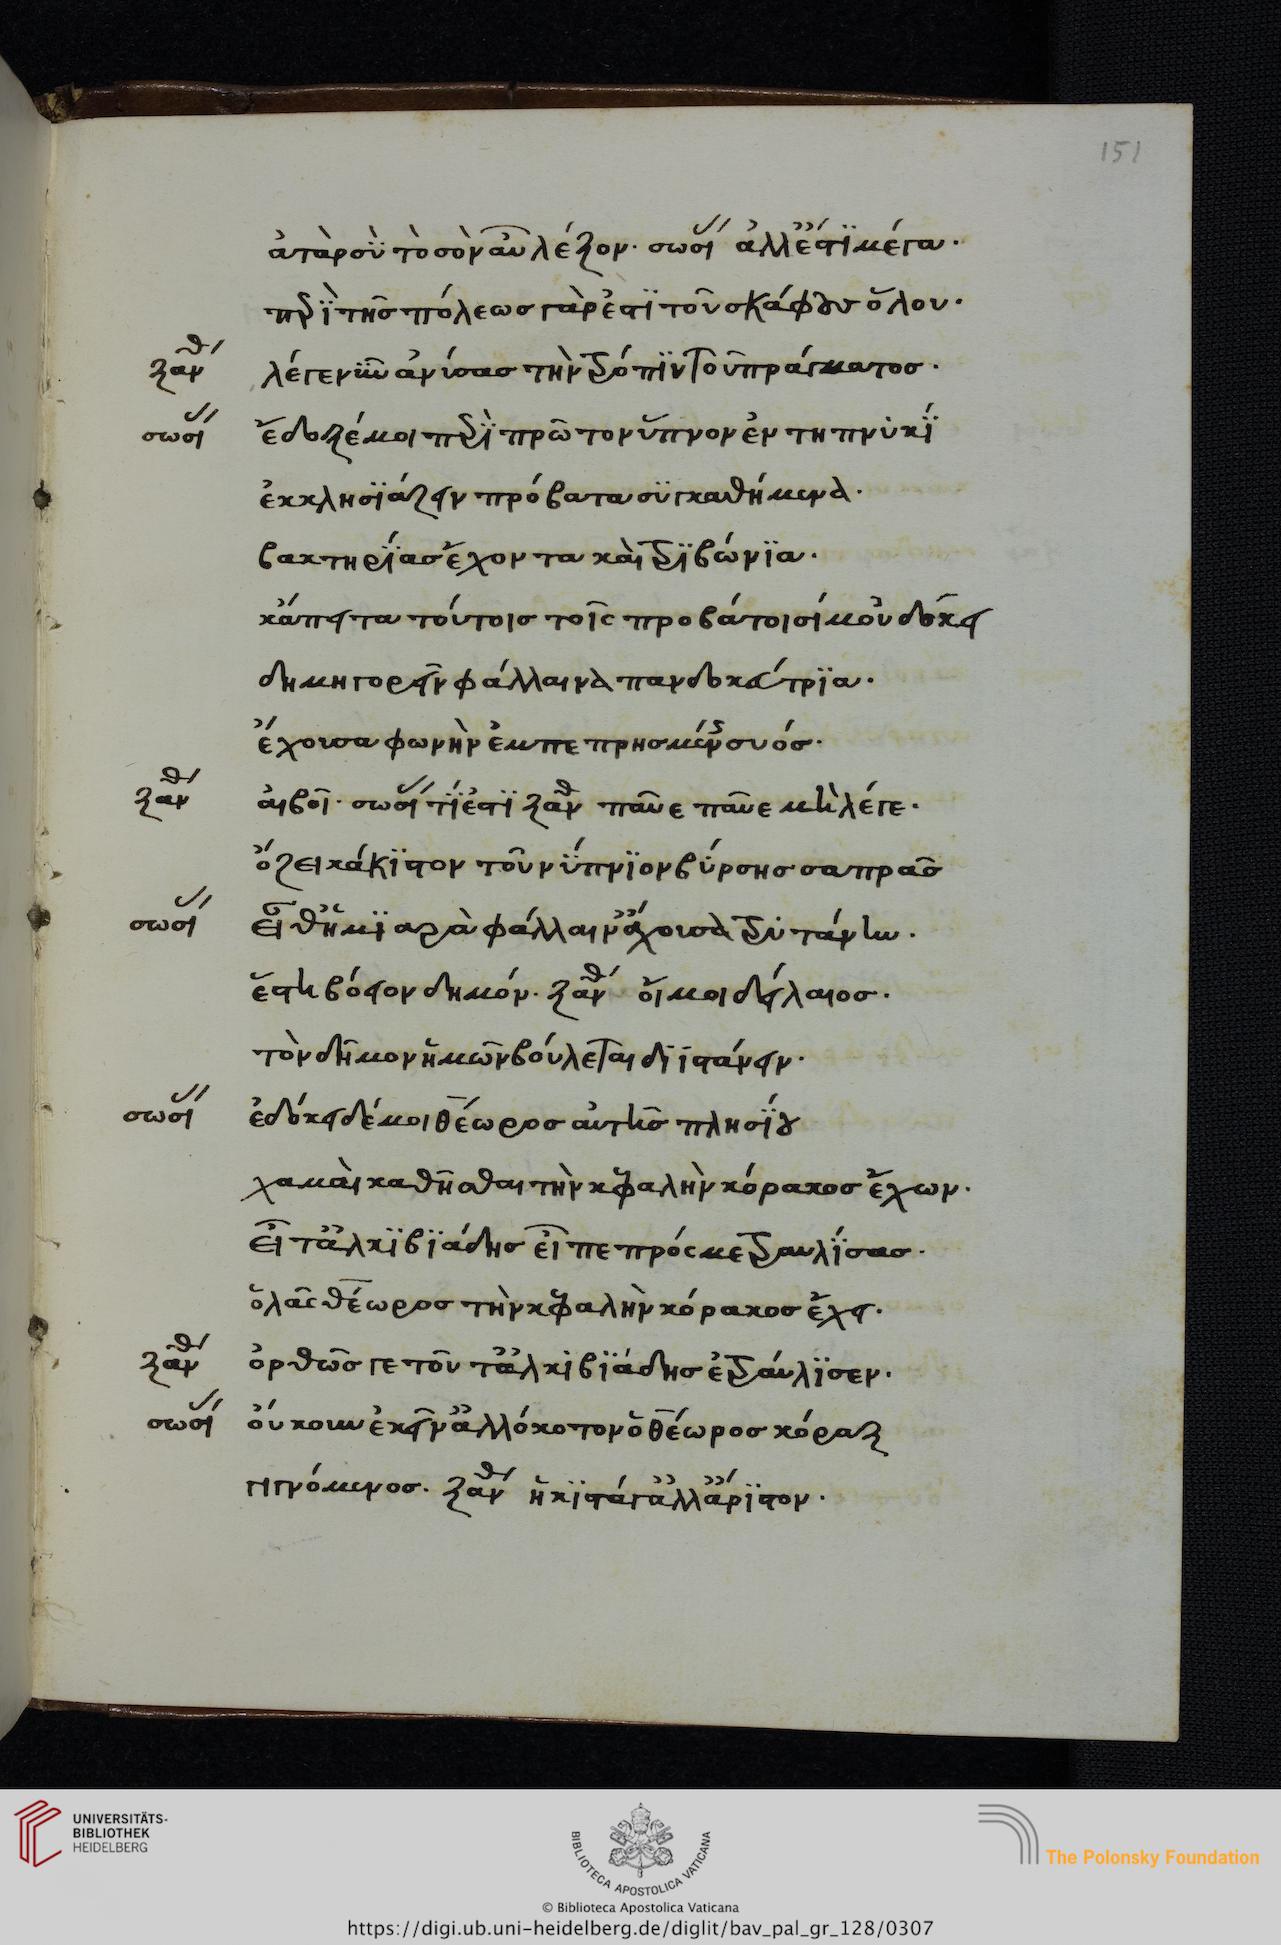 151
ἀτὰρ σὺ τὸ σὸν αὖ λέξον. σωσί ἀλλ' ἔστϊ μέγα.
περὶ τῆς πόλεως γὰρ ἐστϊ τοῦ σκάφους ὅλου.
ξανθ λέγε νῦν ἀνύσας τὴν τρόπϊν τοῦ πράγματος.
σωσί ἔδοξέ μοι περὶ πρῶτον ὕπνον ἐν τῆ πνυκὶ
ἐκκλησϊάζειν πρόβατα συγκαθήμενα.
βακτηρίας ἔχοντα καὶ τρϊβώνϊα.
κἄπειτα τούτοις τοῖς προβάτοισί μοὐδόκει
δημηγορεῖν φάλλαινα πανδοκεύτρϊα.
ἔχουσα φωνὴν ἐμπεπρησμένης συός.
ξανθ αἰβοῖ. σωσί τί ἐστϊ ξανθ παῦε παῦε μὴ λέγε.
ὄζει κάκϊστον τοὐνύπνϊον βύρσης σαπρᾶς
σωσί εἶθ' ἡ μϊαρὰ φάλλαιν' ἔχουσα τρυτάνην.
ἵστη βόειον δημόν. ξανθ οἴμοι δείλαιος.
τὸν δῆμον ἡμῶν βούλεται διϊστάνειν.
σωσί ἐδόκει δέ μοι θέωρος αὐτῆς πλησίου
χαμαὶ καθῆσθαι τὴν κεφαλὴν κόρακος ἔχων.
εἶτ' ἀλκϊβϊάδης εἶπε πρός με τραυλίσας.
ὁλᾶς θέωρος τὴν κεφαλὴν κόρακος ἔχει.
ξανθ ὀρθῶς γε τοῦτ' ἀλκιβϊάδης ἐτραύλϊσεν.
σωσί οὔκουν ἐκεῖν' ἀλλόκοτον ὁ θέωρος κόραξ
γιγνόμενος. ξανθ ἥκϊστά γ' ἀλλ' ἄρϊστον.
UNIVERSITÄTS-
BIBLIOTHEK
HEIDELBERG
BIBLIOTECA APOSTOLICA VATICANA
The Polonsky Foundation
© Biblioteca Apostolica Vaticana
https://digi.ub.uni-heidelberg.de/diglit/bav_pal_gr_128/0307